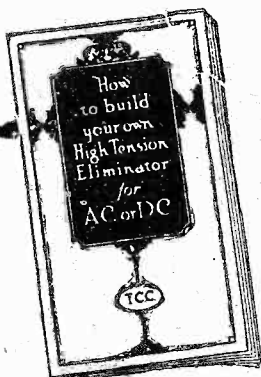 How
to build
your own
High Tension
Eliminator
for
AC. or DC
TCC